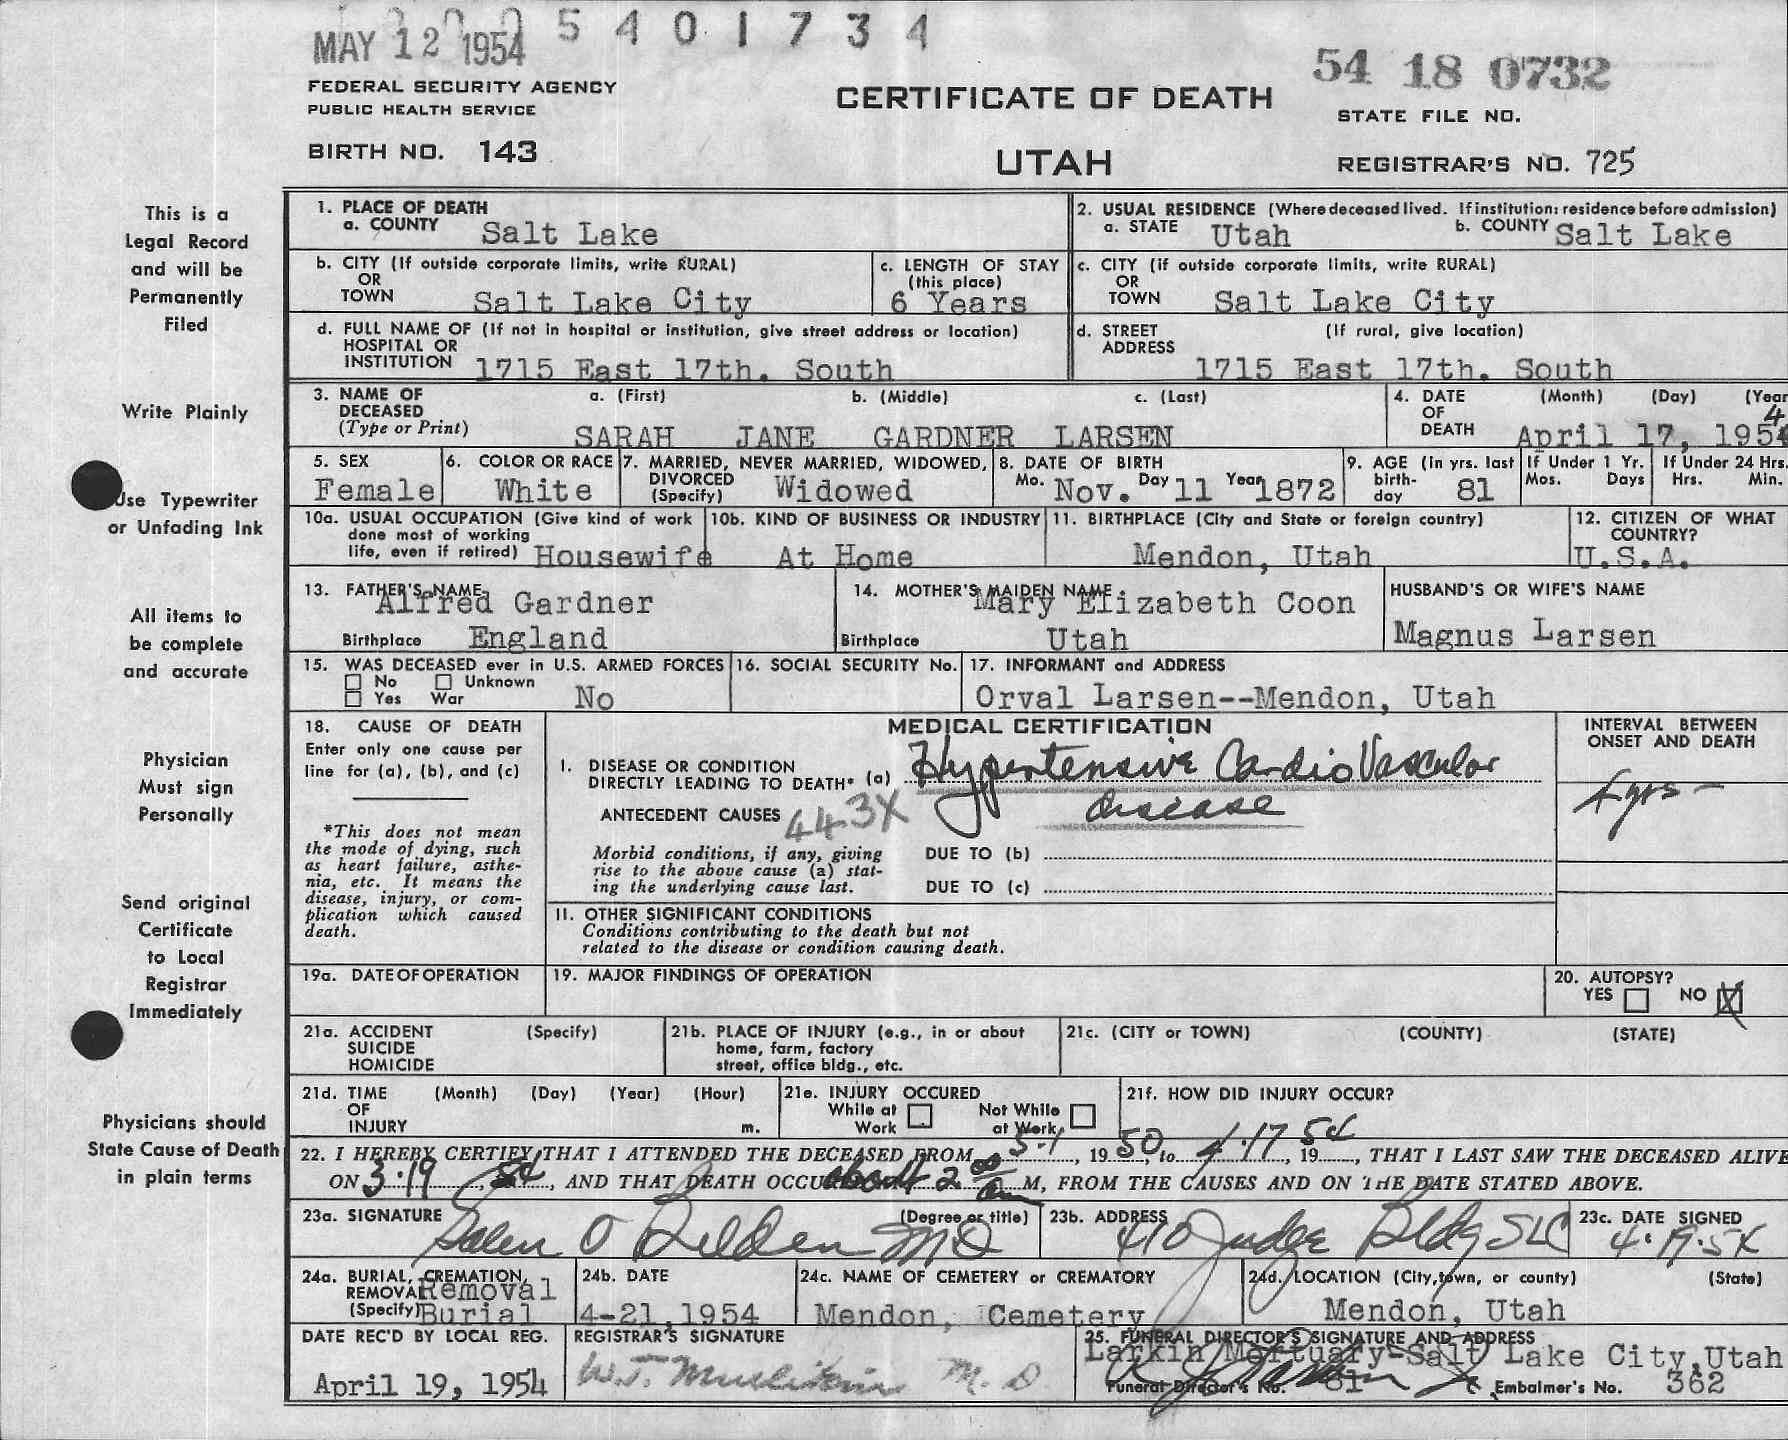 MAY 12 1954 5401734
54 18 0732
FEDERAL SECURITY AGENCY
PUBLIC HEALTH SERVICE
CERTIFICATE OF DEATH
STATE FILE NO.
BIRTH NO. 143
UTAH
REGISTRAR'S NO. 725
This is a
Legal Record
and will be
Permanently
Filed
Write Plainly
Use Typewriter
or Unfading Ink
All items to
be complete
and accurate
Physician
Must sign
Personally
Send original
Certificate
to Local
Registrar
Immediately
Physicians should
State Cause of Death
in plain terms
1. PLACE OF DEATH
a. COUNTY Salt Lake
2. USUAL RESIDENCE (Where deceased lived. If institution: residence before admission)
a. STATE Utah b. COUNTY Salt Lake
b. CITY (If outside corporate limits, write RURAL)
OR
TOWN Salt Lake City
c. LENGTH OF STAY
(this place)
6 Years
c. CITY (if outside corporate limits, write RURAL)
OR
TOWN Salt Lake City
d. FULL NAME OF (If not in hospital or institution, give street address or location)
HOSPITAL OR
INSTITUTION 1715 East 17th. South
d. STREET (If rural, give location)
ADDRESS
1715 East 17th. South
3. NAME OF a. (First) b. (Middle) c. (Last)
DECEASED
(Type or Print) SARAH JANE GARDNER LARSEN
4. DATE (Month) (Day) (Year
OF 4
DEATH April 17, 1954
5. SEX
Female
6. COLOR OR RACE
White
7. MARRIED, NEVER MARRIED, WIDOWED,
DIVORCED
(Specify) Widowed
8. DATE OF BIRTH
Mo. Nov. Day 11 Year 1872
9. AGE (in yrs. last
birth-
day 81
If Under 1 Yr.
Mos. Days
If Under 24 Hrs.
Hrs. Min.
10a. USUAL OCCUPATION (Give kind of work
done most of working
life, even if retired) Housewife
10b. KIND OF BUSINESS OR INDUSTRY
At Home
11. BIRTHPLACE (City and State or foreign country)
Mendon, Utah
12. CITIZEN OF WHAT
COUNTRY?
U.S.A.
13. FATHER'S NAME
Alfred Gardner
Birthplace England
14. MOTHER'S MAIDEN NAME
Mary Elizabeth Coon
Birthplace Utah
HUSBAND'S OR WIFE'S NAME
Magnus Larsen
15. WAS DECEASED ever in U.S. ARMED FORCES
No Unknown
Yes War No
16. SOCIAL SECURITY No.
17. INFORMANT and ADDRESS
Orval Larsen--Mendon, Utah
18. CAUSE OF DEATH
Enter only one cause per
line for (a), (b), and (c)
*This does not mean
the mode of dying, such
as heart failure, asthe-
nia, etc. It means the
disease, injury, or com-
plication which caused
death.
MEDICAL CERTIFICATION
I. DISEASE OR CONDITION
DIRECTLY LEADING TO DEATH* (a) Hypertensive CardioVascular
disease
ANTECEDENT CAUSES 443X
Morbid conditions, if any, giving
rise to the above cause (a) stat-
ing the underlying cause last.
DUE TO (b)
DUE TO (c)
II. OTHER SIGNIFICANT CONDITIONS
Conditions contributing to the death but not
related to the disease or condition causing death.
INTERVAL BETWEEN
ONSET AND DEATH
4 yrs -
19a. DATE OF OPERATION
19. MAJOR FINDINGS OF OPERATION
20. AUTOPSY?
YES NO X
21a. ACCIDENT (Specify)
SUICIDE
HOMICIDE
21b. PLACE OF INJURY (e.g., in or about
home, farm, factory
street, office bldg., etc.
21c. (CITY or TOWN) (COUNTY) (STATE)
21d. TIME (Month) (Day) (Year) (Hour)
OF
INJURY m.
21e. INJURY OCCURED
While at Not While
Work at Work
21f. HOW DID INJURY OCCUR?
22. I HEREBY CERTIFY THAT I ATTENDED THE DECEASED FROM 5-1, 19 50, to 4.17, 19 54, THAT I LAST SAW THE DECEASED ALIVE
ON 3.19, 54, AND THAT DEATH OCCU about 2 00 am M, FROM THE CAUSES AND ON THE DATE STATED ABOVE.
23a. SIGNATURE (Degree or title)
Galen O Belden MD
23b. ADDRESS
410 Judge Bldg SLC
23c. DATE SIGNED
4.19.54
24a. BURIAL, CREMATION,
REMOVAL Removal
(Specify) Burial
24b. DATE
4-21,1954
24c. NAME OF CEMETERY or CREMATORY
Mendon, Cemetery
24d. LOCATION (City, town, or county) (State)
Mendon, Utah
DATE REC'D BY LOCAL REG.
April 19, 1954
REGISTRAR'S SIGNATURE
M.D.
25. FUNERAL DIRECTOR'S SIGNATURE AND ADDRESS
Larkin Mortuary-Salt Lake City,Utah
Funeral Director's No. 61 Embalmer's No. 362